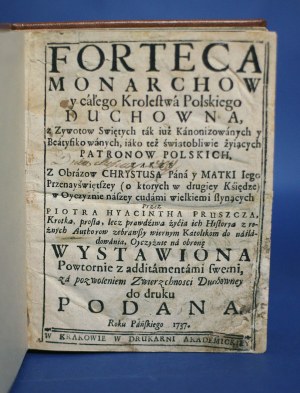 FORTECA
MONARCHOW
y cáłego Krolestwá Polskiego
DUCHOWNA,
z Zywotow Swiętych ták iuż Kánonizowánych y
Beátyfikowánych, iáko też świątobliwie żyiących
PATRONOW POLSKICH,
Z Obrázow CHRYSTUSA Páná y MATKI Iego
Przenayświętszey (o ktorych w drugiey Księdze)
w Oyczyźnie nászey cudámi wielkiemi słynących
Przez
PIOTRA HYACINTHA PRUSZCZA,
Krotka, prosta, lecz prawdźiwa życia ich Historya z ro-
żnych Authorow zebrána, wiernym Katolikom do náśla-
dowánia, Oyczyźnie ná obronę
WYSTAWIONA
Powtornie z additámentámi swemi,
zá pozwoleniem Zwierzchnosći Duchowney
do druku
PODANA
Roku Páńskiego 1737.
W KRAKOWIE W DRUKARNI AKADEMICKIEY